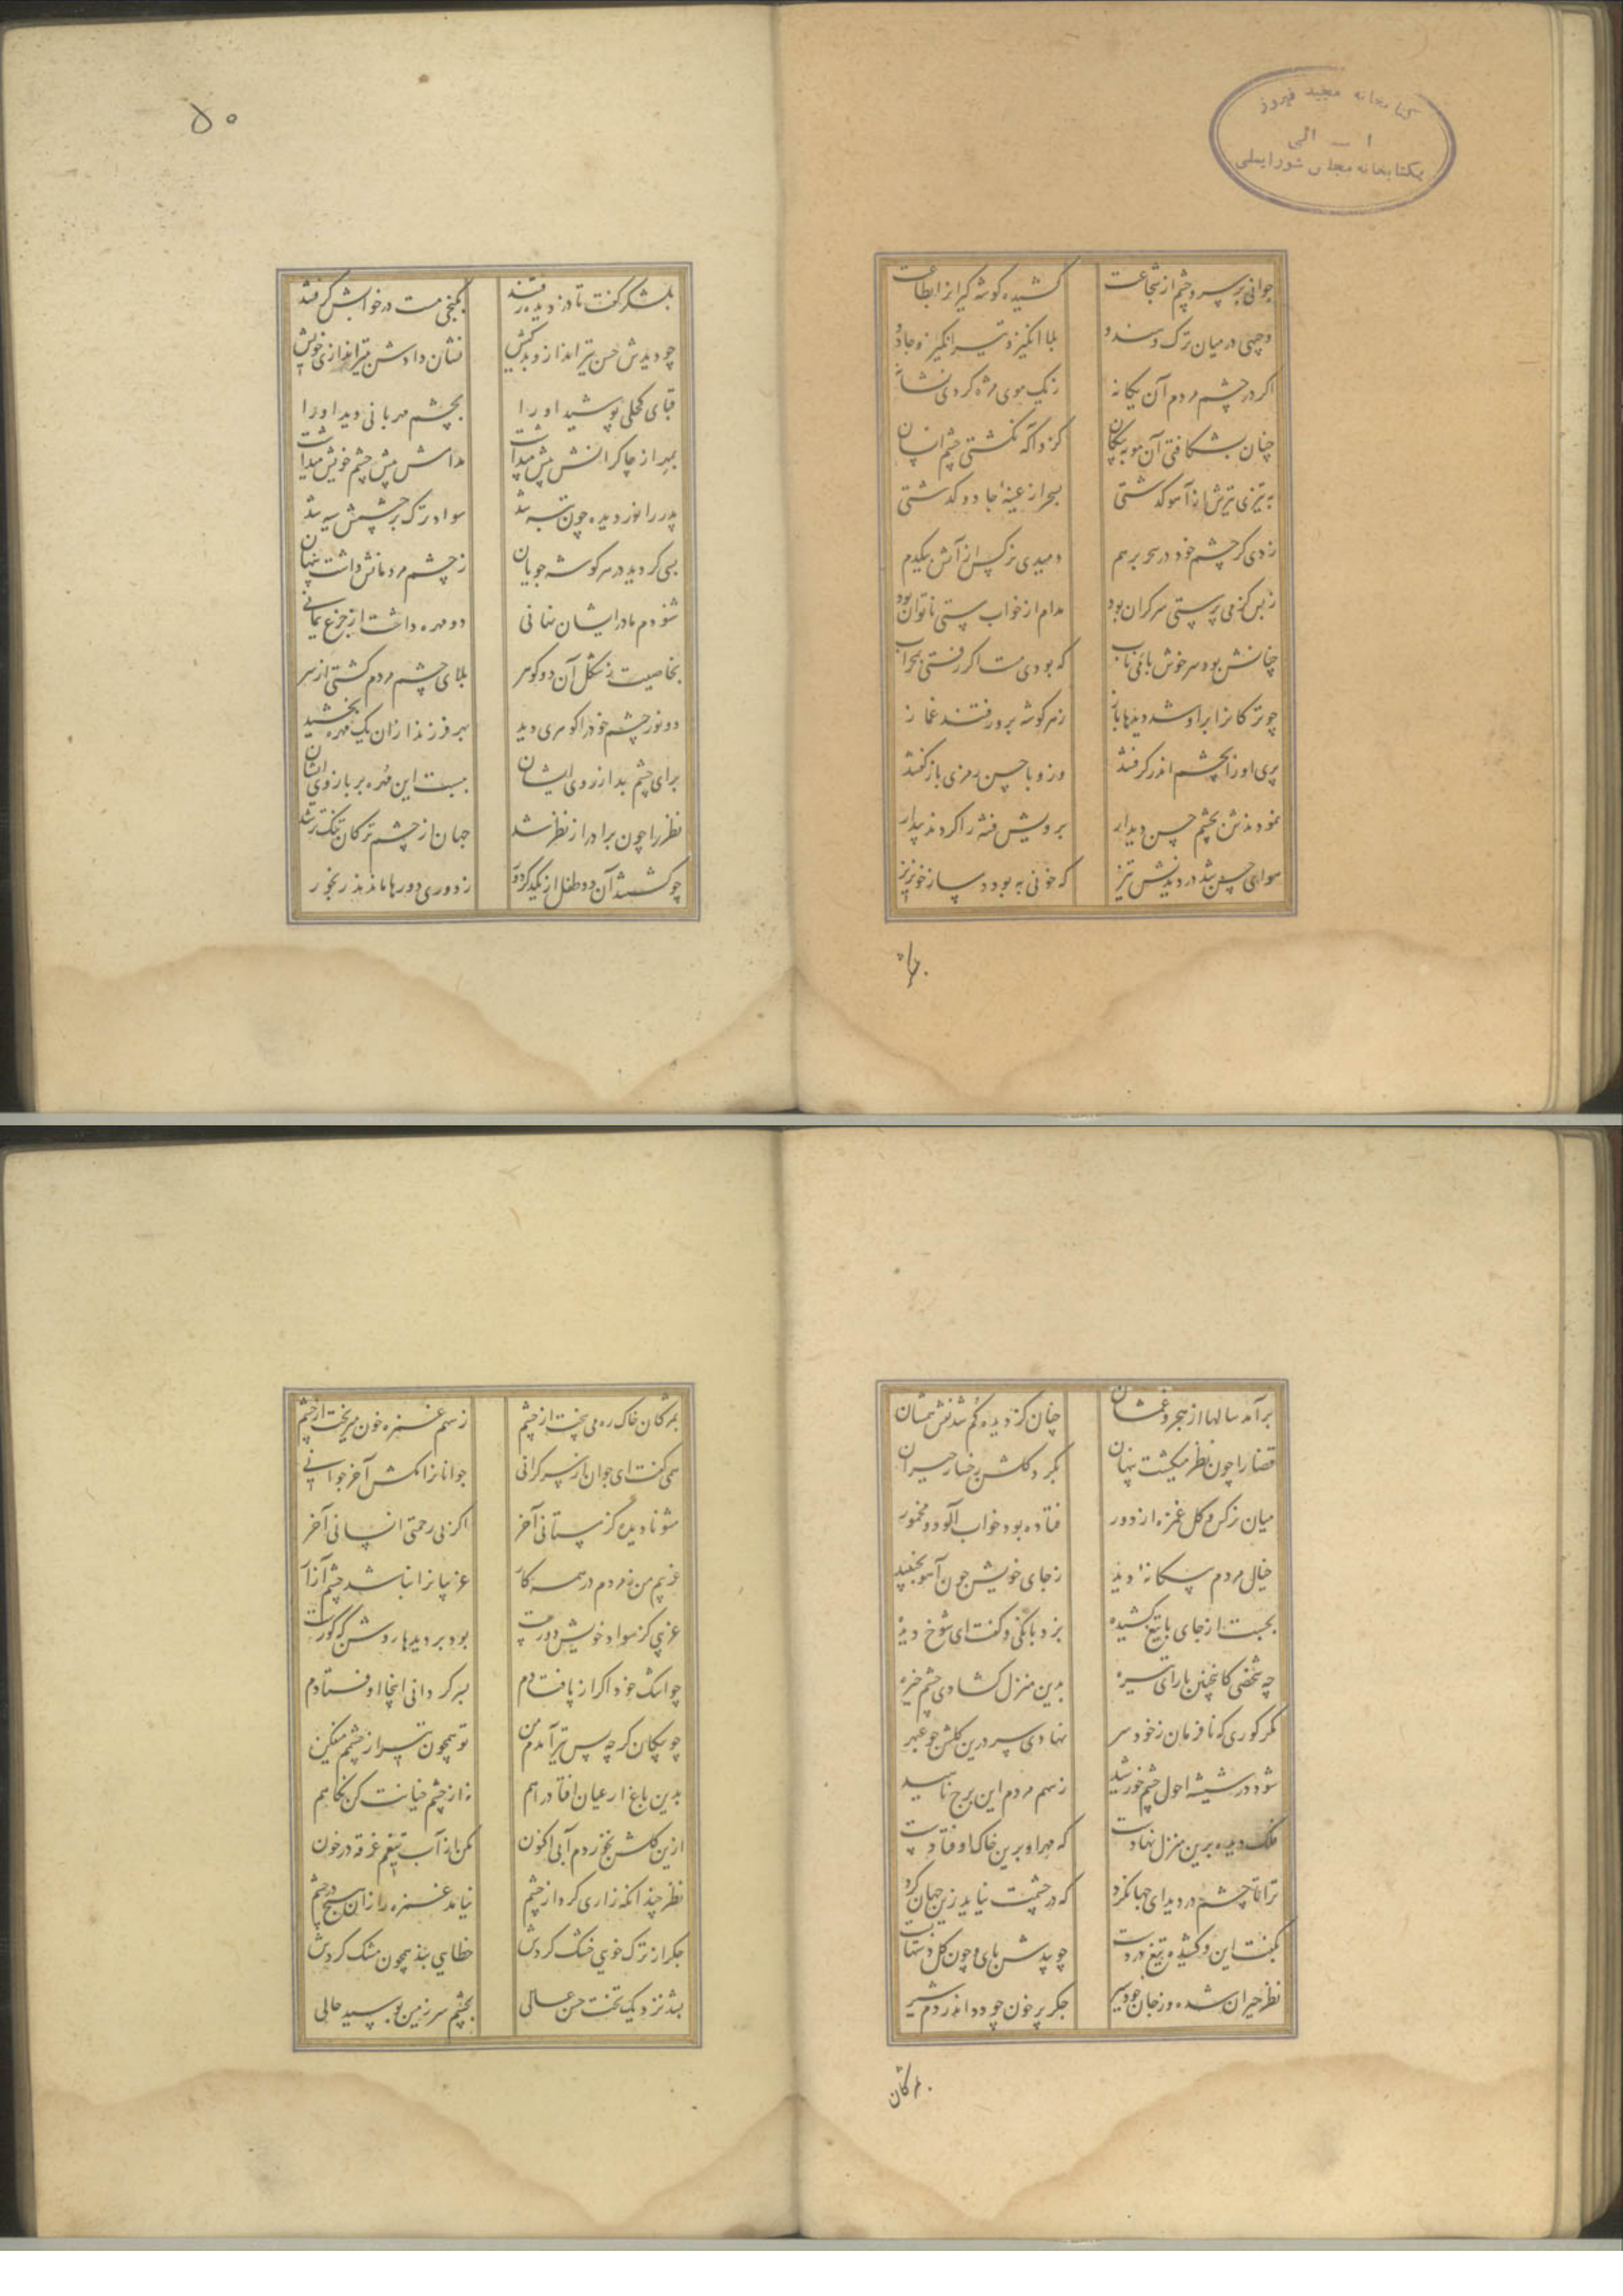 کتابخانه مجید فیروز
ا ــ ائی
بکتابخانه مجلس شورایملی
جوانی پر سر و چشم از شجاعت کشیده گوشه گیر از اطاعت
وجهی در میان ترک و هندو بلا انگیز و تیر انگیز و جادو
اگر در چشم مردم آن یگانه ز یک موی مژه کردی نشانه
چنان بشکافتی آن مو به پیکان کزو آگه نگشتی چشم انسان
به تیزی تیرش از آهو گذشتی بسحر از جادو گذشتی
زدی گر چشم خود در سحر بر هم دمیدی نرگس از آتش بیکدم
ز بس کز می پرستی سر گران بود مدام از خواب مستی ناتوان بود
چنانش بود سر خوش با می ناب که بودی مست اگر رفتی بمحراب
چو ترکانرا برو شد دیدها باز ز هر گوشه برو رفتند غماز
پری او را بچشم اندر گرفتند وزو با حسن رمزی باز گفتند
نمودندش بچشم حسن دیدار برویش فتنه را کردند بیدار
هوای حسن شد در دیدنش تیز که خونی به بود در ساز خونریز
بلشکر گفت تا در دیده رفتند بکنجی مست در خوابش گرفتند
چو دیدش حسن تیرانداز و دلکش نشان دادش تیراندازی خویش
قبای کحلی پوشید او را بچشم مهربانی دید او را
بمهر از چاکرانش پیش میداشت مدامش پیش چشم خویش میداشت
پدر را نور دیده چون تبه شد سواد ترک بر چشمش سیه شد
بسی گردید در هر گوشه جویان ز چشم مردمانش داشت پنهان
شنودم مادر ایشان نهانی دو مهره داشت از جزع یمانی
بخاصیت ز شکل آن دو گوهر بلای چشم مردم گشتی از سر
دو نور چشم خود را گوهری دید بهر فرزند ازان یک مهره بخشید
برای چشم بد از روی ایشان ببست این مهره بر بازوی ایشان
نظر را چون برادر از نظر شد جهان از چشم ترکان تنگ تر شد
چو گشتند آن دو طفل از یکدگر دور ز دوری دورها ماندند رنجور
۵۰
برآمد سالها از هجر و غمشان چنان کز دیده گم شد نقششان
قضا را چون نظر میگشت پنهان بگرد گلشن رخسار حیران
میان نرگس و گل غمزه از دور فتاده بود خواب آلود و مخمور
خیال مردم بیگانه دید ز جای خویش چون آهو بجنبید
بجست از جای با تیغ کشیده بزد بانگی و گفت ای شوخ دیده
چه شخصی کاینچنین با رای تیره بدین منزل گشادی چشم خیره
مگر کوری که نافرمان ز خود سر نهادی سر درین گلشن چو عبهر
شود در شیشه احول چشم خورشید ز سهم مردم این برج ناهید
فلک دیده برین منزل نهادست که مهر او برین خاک اوفتادست
ترا تا چشم در دید ای جهانگرد که در چشمت نیاید زین جهان گرد
بگفت این و کشیده تیغ در دست چو بیدش پای و چون گل دستها بست
نظر حیران شده وز جان خود سیر جگر پر خون چو دود اندر دم شیر
بمژگان خاک ره می بیخت از چشم ز سهم غمزه خون میریخت از چشم
همی گفت ای جوان ناز سر گرانی جوانانرا مکش آخر جوانی
مشو نادیده کز مستانی آخر اگر بی رحمتی انسانی آخر
غریبم من نه مردم در همه کار غریبانرا نباشد چشم آزار
غریبی کز سواد خویش دورست بود بر دیدها روشن که کورست
چو اشک خود اگر از پا فتادم بسر گردانی اینجا اوفتادم
چو پیکان گرچه پس تیر آمدم من تو همچون تیر از چشم مفکن
بدین باغ ار عیان افتاد راهم نه از چشم خیانت کن نگاهم
ازین گلشن نخوردم آبی اکنون مکن از آب تیغم غرقه در خون
نظر چندانکه زاری کرد از چشم نیامد غمزه را زان هیچ در چشم
جگر از ترک خونی خشک کردش خطایی بند همچون مشک کردش
بشد نزدیک تخت حسن عالی بچشم سر زمین بوسید حالی
مژگان